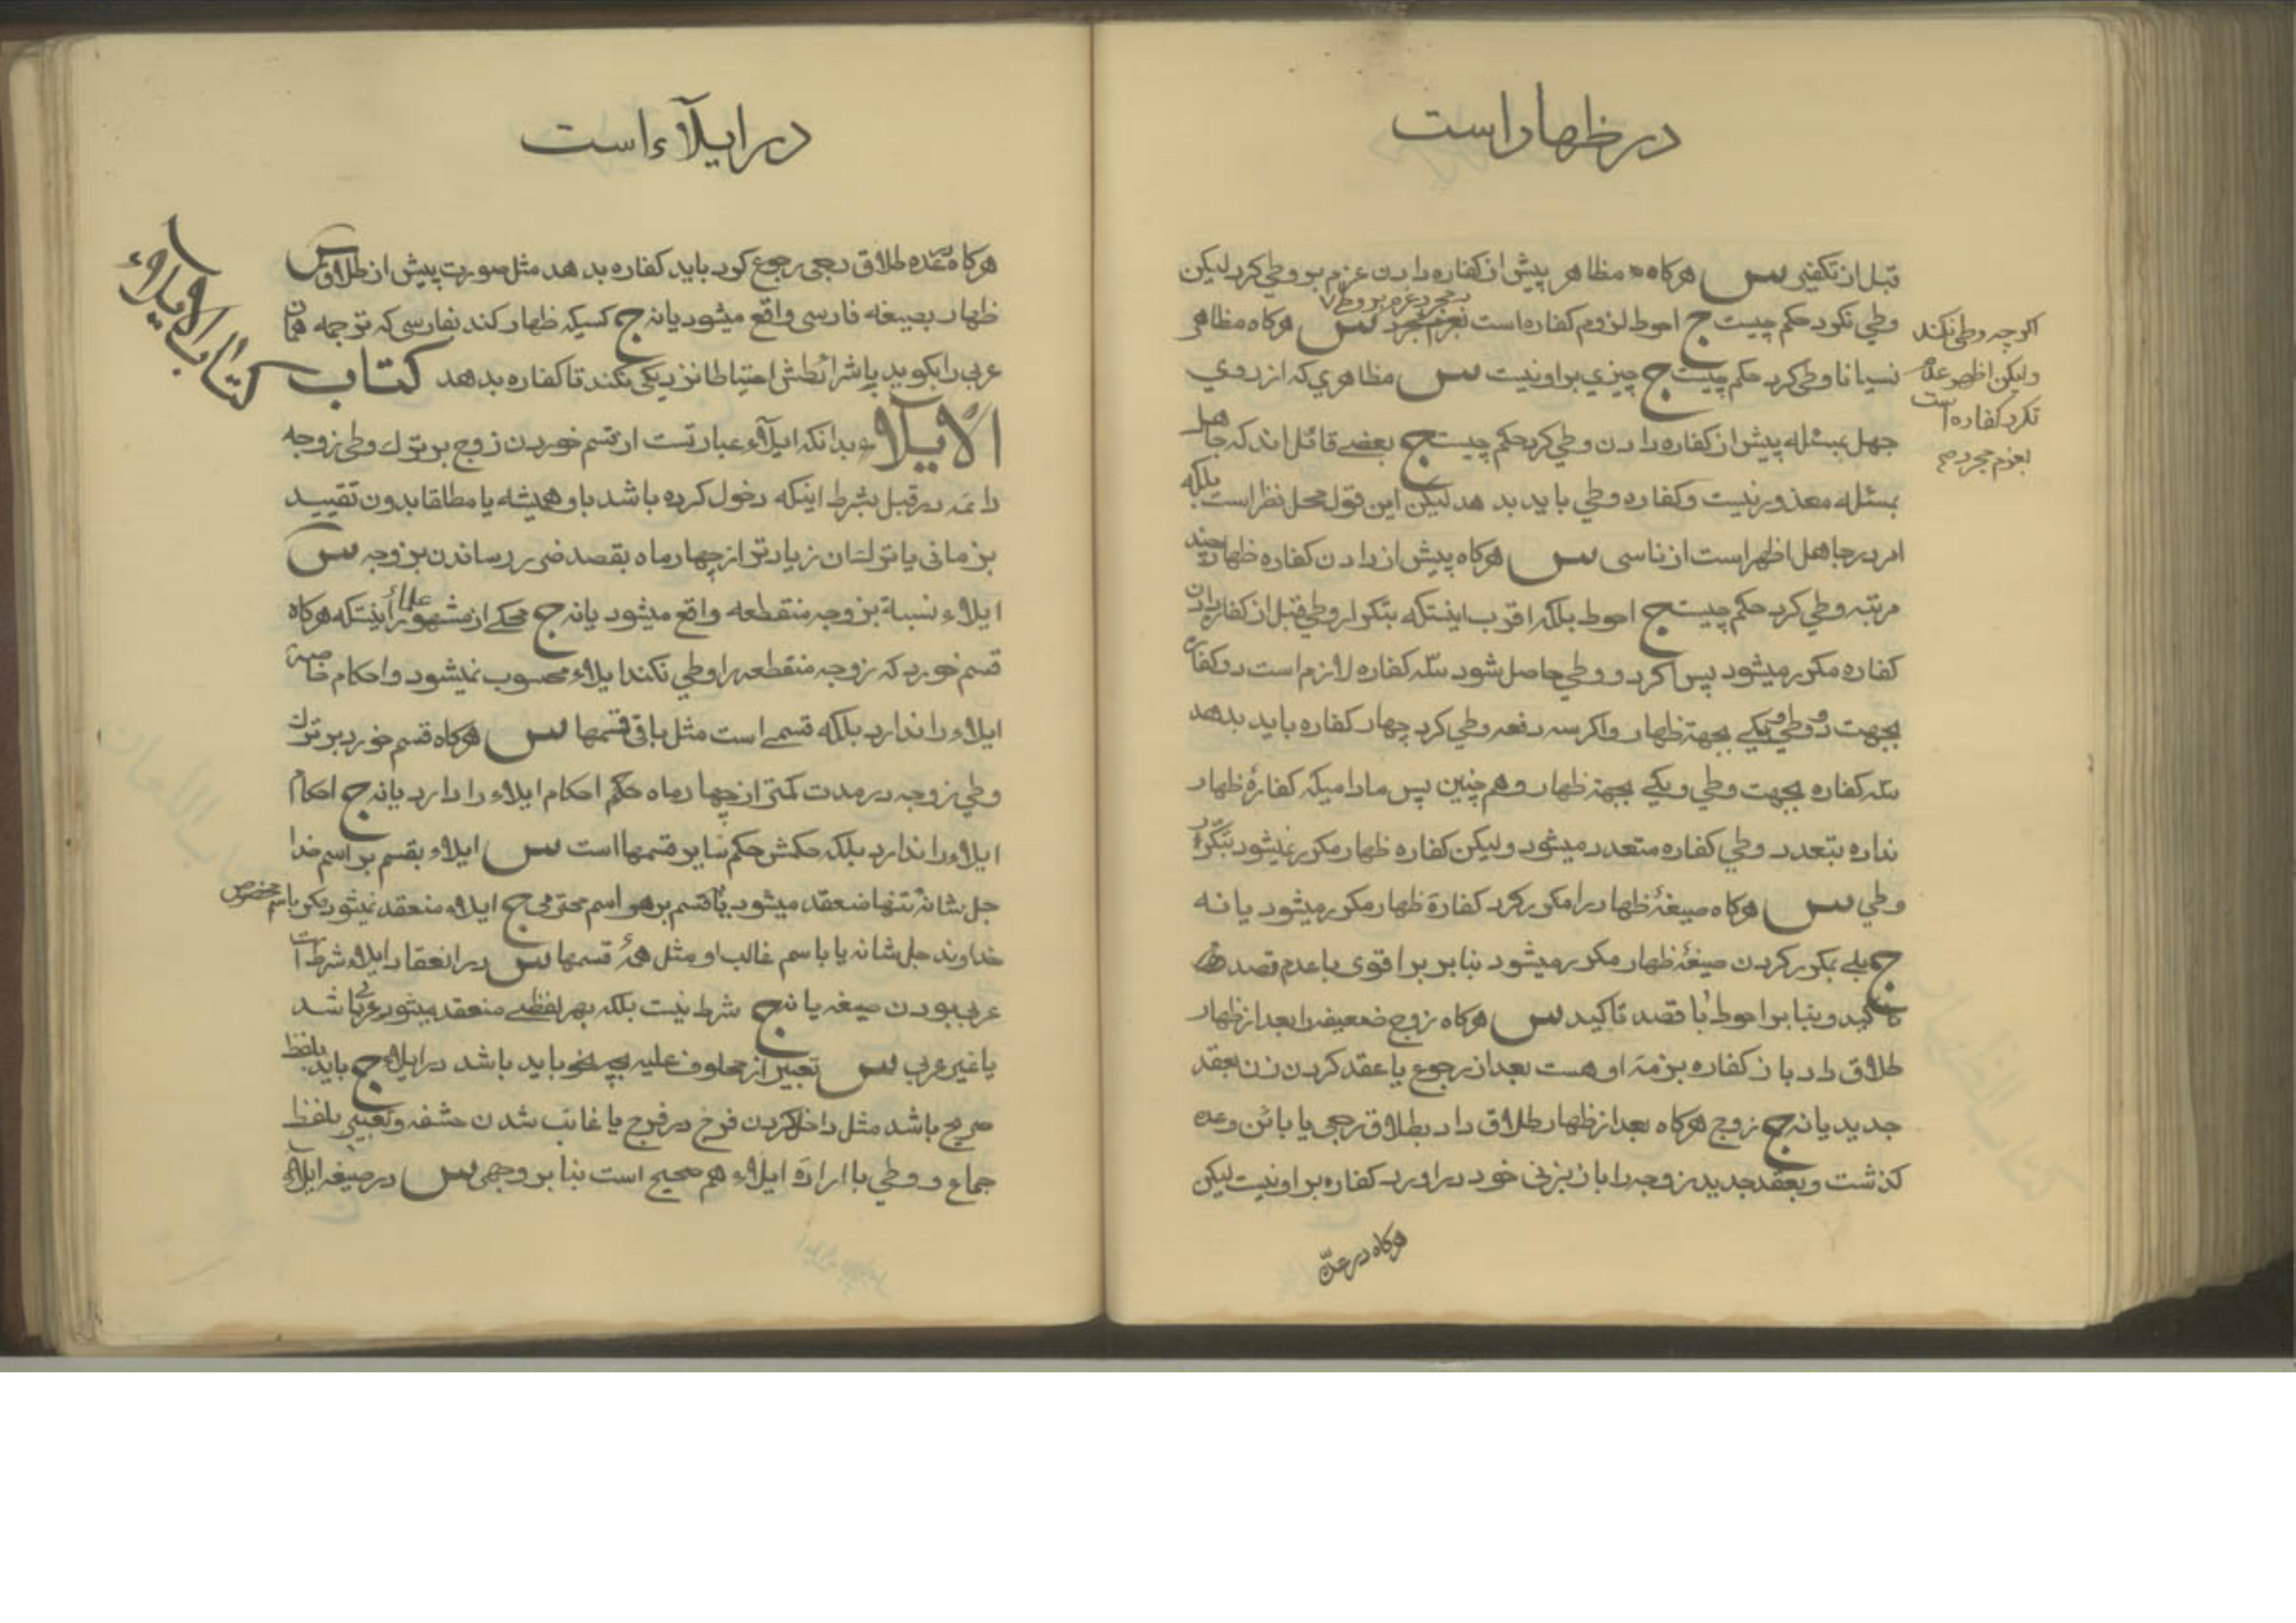 در ظهار است
قبل از تکفیر س هرکاه مظاهر پیش از کفاره دادن عزم بر وطي کرد لیکن
وطي نکرد حکم چیست ج احوط لزوم کفاره است بمجرد عزم بر وطي س هرکاه مظاهر
نسیانا وطی کرد حکم چیست ج چیزي بر او نیست س مظاهري که از روي
جهل بمسئله پیش از کفاره دادن وطي کرد حکم چیست ج بعضے قائل اند که جاهل
بمسئله معذور نیست و کفاره وطي باید بدهد لیکن این قول محل نظر است بلکه
امر در جاهل اظهر است از ناسی س هرکاه پیش از دادن کفاره ظهار چند
مرتبه وطي کرد حکم چیست ج احوط بلکه اقرب اینستکه بتکرار وطي قبل از کفاره دادن
کفاره مکرر میشود پس اکر دو وطي حاصل شود سه کفاره لازم است دو کفاره
بجهت دو وطي و یکے بجهة ظهار و اکر سه دفعه وطي کرد چهار کفاره باید بدهد
سه کفاره بجهت وطي و یکے بجهة ظهار و هم چنین پس مادامیکه کفارهٔ ظهار
نداده بتعدد وطي کفاره متعدد میشود ولیکن کفاره ظهار مکرر نمیشود بتکرر
وطي س هرکاه صیغهٔ ظهار را مکرر کرد کفارهٔ ظهار مکرر میشود یا نه
ج بلے بمکرر کردن صیغهٔ ظهار مکرر میشود بنا بر اقوی با عدم قصد
تاکید و بنا بر احوط با قصد تاکید س هرکاه زوج ضعیفه را بعد از ظهار
طلاق داد باز کفاره بر ذمهٔ او هست بعد از رجوع یا عقد کردن زن بعقد
جدید یا نه ج زوج هرکاه بعد از ظهار طلاق داد بطلاق رجعی یا بائن و عده
کذشت و بعقد جدید زوجه را باز بزنی خود در اورد کفاره بر او نیست لیکن
هرکاه در عدّه
اکرچه وطی نکند
ولیکن اظهر عدم
تکرر کفاره است
بعزم مجرد صح
در ایلآء است
هرکاه در عده طلاق رجعی رجوع کرد باید کفاره بدهد مثل صورت پیش از طلاق س
ظهار بصیغه فارسی واقع میشود یا نه ج کسیکه ظهار کند بفارسی که ترجمه همان
عربی را بکوید با شرائطش احتیاطا نزدیکی نکند تا کفاره بدهد کتاب
الایلآء بدانکه ایلآء عبارتست از قسم خوردن زوج بر ترک وطی زوجه
دائمه در قبل بشرط اینکه دخول کرده باشد باو همیشه یا مطلقا بدون تقیید
بزمانی یا زیادتر از چهار ماه بقصد ضرر رساندن بزوجه س
ایلاء نسبة بزوجه منقطعه واقع میشود یا نه ج محکے از مشهور علما اینستکه هرکاه
قسم خورد که زوجه منقطعه را وطي نکند ایلاء محسوب نمیشود و احکام خاصهٔ
ایلاء را ندارد بلکه قسمے است مثل باقی قسمها س هرکاه قسم خورد بر ترک
وطي زوجه در مدت کمتر از چهار ماه حکم احکام ایلاء را دارد یا نه ج احکام
ایلاء را ندارد بلکه حکمش حکم سایر قسمها است س ایلاء بقسم بر اسم خدا
جل شانه تنها منعقد میشود یا قسم بر هر اسم محترمی ج ایلاء منعقد نمیشود مکر باسم مخصوص
خداوند جل شانه یا باسم غالب او مثل همهٔ قسمها س در انعقاد ایلاء شرط است
عربی بودن صیغه یا نه ج شرط نیست بلکه بهر لفظے منعقد میشود عربی باشد
یا غیر عربی س تعبیر از محلوف علیه بچه نحو باید باشد در ایلاء ج باید بلفظ
صریح باشد مثل داخل کردن فرج در فرج یا غائب شدن حشفه و تعبیر بلفظ
جماع و وطي با ارادهٔ ایلاء هم صحیح است بنا بر وجهی س در صیغه ایلاء
کتاب الایلاء